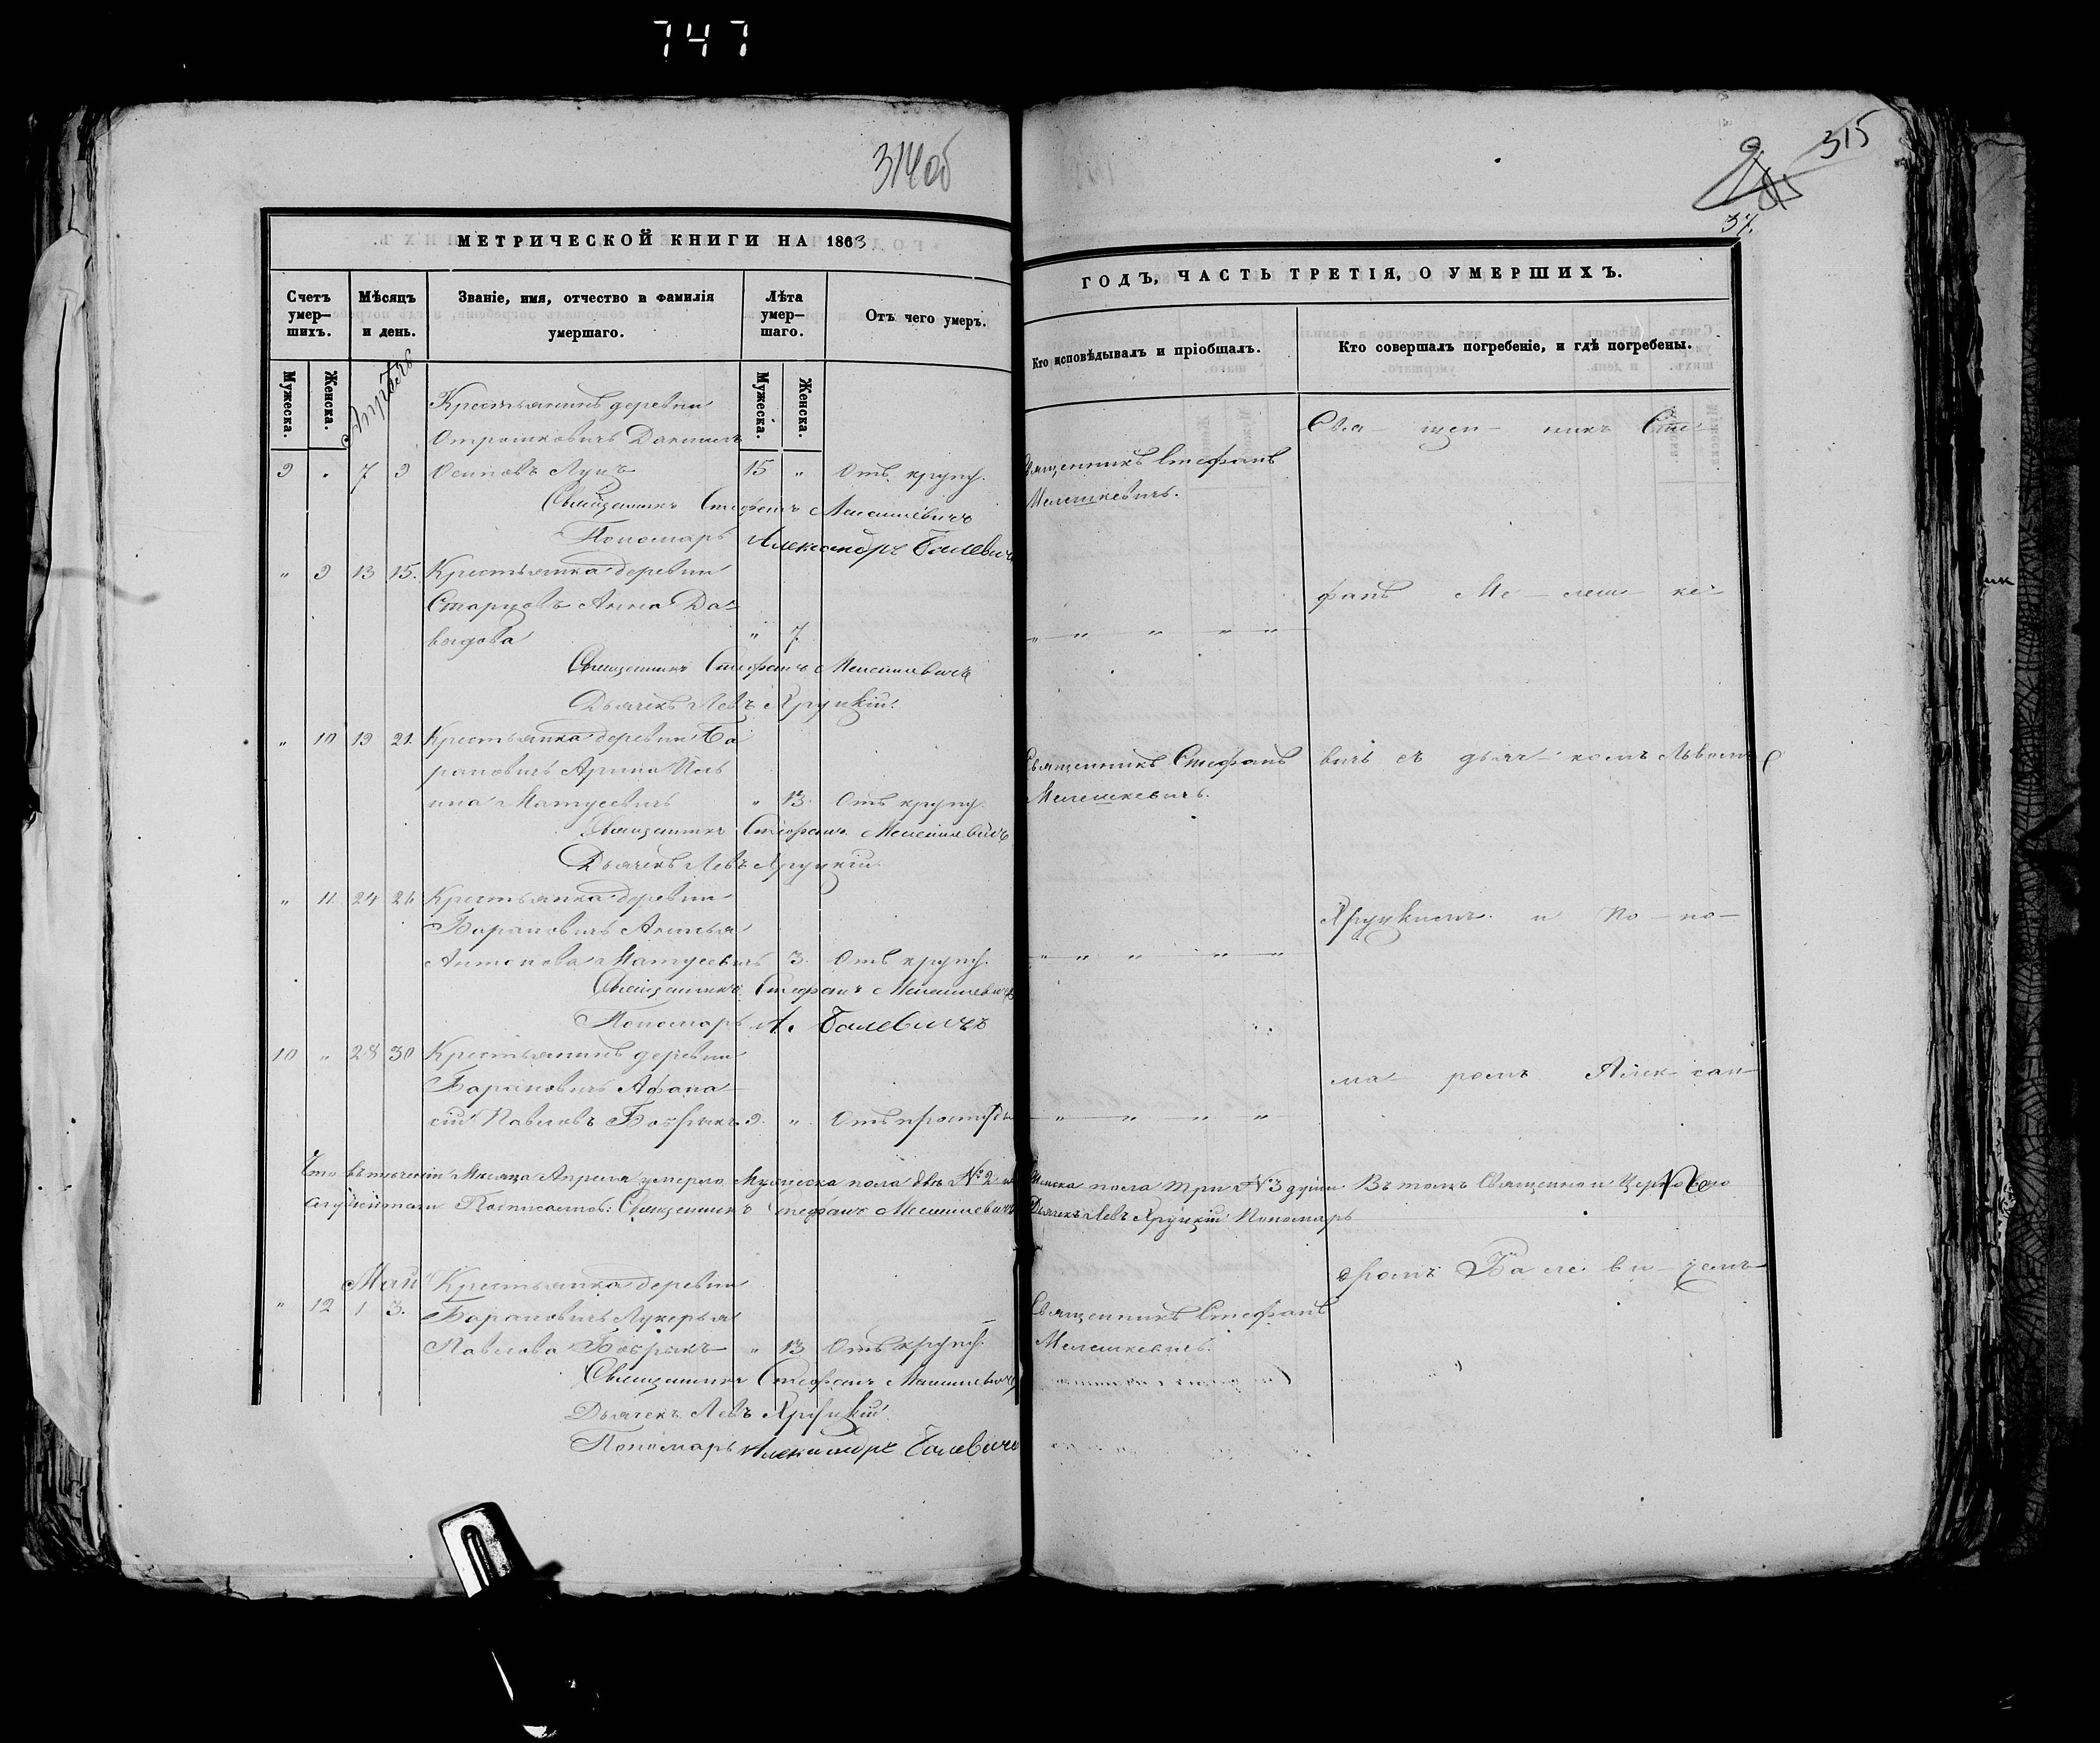 747
314об
315
37.
МЕТРИЧЕСКОЙ КНИГИ НА 1863
Счетъ умер-шихъ.
Мѣсяцъ и день.
Званіе, имя, отчество и фамилія умершаго.
Лѣта умер-шаго.
Отъ чего умеръ.
Мужеска.
Женска.
Апрѣль
Мужеска.
Женска.
Крестьянинъ деревни
Отрошковичъ Даниилъ
9 " 7 9 Осиповъ Луцъ 15 " Отъ круп.
Священникъ Стефанъ Мелешкевичъ
Пономарь Александръ Балевичъ
" 9 13 15. Крестьянка деревни
Старцовъ Анна Да-
выдова " 7.
Священникъ Стефанъ Мелешкевичъ
Дьячекъ Левъ Яруцкій.
" 10 19 21. Крестьянка деревни Ба
рановичъ Арина Иль
ина Матусевичъ " 13. Отъ круп.
Священникъ Стефанъ Мелешкевичъ
Дьячекъ Левъ Яруцкій.
" 11. 24 26 Крестьянка деревни
Барановичъ Акилья
Антонова Матусевичъ 3. Отъ круп.
Священникъ Стефанъ Мелешкевичъ
Пономарь А. Балевичъ
10 " 28 30 Крестьянинъ деревни
Барановичъ Афана-
сій Павловъ Бобрикъ 9. " Отъ простуды
Что въ теченіи Месяца Апреля умерло Мужеска пола двѣ №2 и
Подписались: Священникъ Стефанъ Мелешкевичъ
Май Крестьянка деревни
" 12 1 3. Барановичъ Лукерья
Павлова Бобрикъ " 13 Отъ круп.
Священникъ Стефанъ Мелешкевичъ
Дьячекъ Левъ Яруцкій.
Пономарь Александръ Балевичъ
ГОДЪ, ЧАСТЬ ТРЕТІЯ, О УМЕРШИХЪ.
Кто исповѣдывалъ и пріобщалъ.
Кто совершалъ погребеніе, и гдѣ погребены.
Свя- щен- никъ Сте-
Священникъ Стефанъ
Мелешкевичъ.
фанъ Ме- леш- ке-
" " " " "
Священникъ Стефанъ вичъ съ дьяч- комъ Львомъ
Мелешкевичъ.
Яруцкимъ и По- но-
" " " " "
ма- ромъ Алек- сан-
" " " "
Женска пола три №3 души. Въ томъ Священно и Церковно
Дьячекъ Левъ Яруцкій Пономарь
дромъ Ба ле ви- чемъ
Священникъ Стефанъ
Мелешкевичъ.